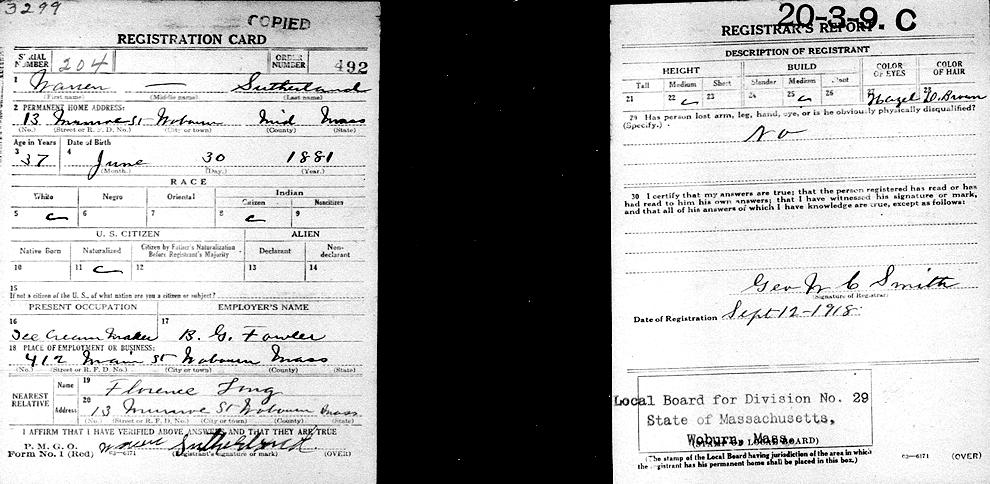 3299
COPIED
REGISTRATION CARD
SERIAL NUMBER 204 ORDER NUMBER 492
1 Warren — Sutherland
(First name) (Middle name) (Last name)
2 PERMANENT HOME ADDRESS:
13 Munroe St Woburn Mid Mass
(No.) (Street or R. F. D. No.) (City or town) (County) (State)
Age in Years Date of Birth
3 37 4 June 30 1881
(Month.) (Day.) (Year.)
RACE
White Negro Oriental Indian
Citizen Noncitizen
5 6 7 8 9
U. S. CITIZEN ALIEN
Native Born Naturalized Citizen by Father's Naturalization Before Registrant's Majority Declarant Non-declarant
10 11 12 13 14
15
If not a citizen of the U. S., of what nation are you a citizen or subject?
PRESENT OCCUPATION EMPLOYER'S NAME
16 Ice Cream Maker 17 B. G. Fowler
18 PLACE OF EMPLOYMENT OR BUSINESS:
412 Main St Woburn Mass
(No.) (Street or R. F. D. No.) (City or town) (County) (State)
NEAREST RELATIVE Name 19 Florence
Address 20 13 Munroe St Woburn Mass
(No.) (Street or R. F. D. No.) (City or town) (County) (State)
I AFFIRM THAT I HAVE VERIFIED ABOVE ANSWERS AND THAT THEY ARE TRUE
P. M. G. O.
Form No. 1 (Red) 03—6171 Sutherland
(Registrant's signature or mark) (OVER)
20-3-9. C
REGISTRAR'S REPORT
DESCRIPTION OF REGISTRANT
HEIGHT BUILD COLOR OF EYES COLOR OF HAIR
Tall Medium Short Slender Medium Stout
21 22 23 24 25 26 27 Hazel 28 D. Brown
29 Has person lost arm, leg, hand, eye, or is he obviously physically disqualified?
(Specify.)
No
30 I certify that my answers are true; that the person registered has read or has
had read to him his own answers; that I have witnessed his signature or mark,
and that all of his answers of which I have knowledge are true, except as follows:
Geo W C Smith
(Signature of Registrar)
Date of Registration Sept 12-1918
Local Board for Division No. 29
State of Massachusetts,
Woburn, Mass.
(STAMP OF LOCAL BOARD)
(The stamp of the Local Board having jurisdiction of the area in which
the registrant has his permanent home shall be placed in this box.)
03—6171 (OVER)